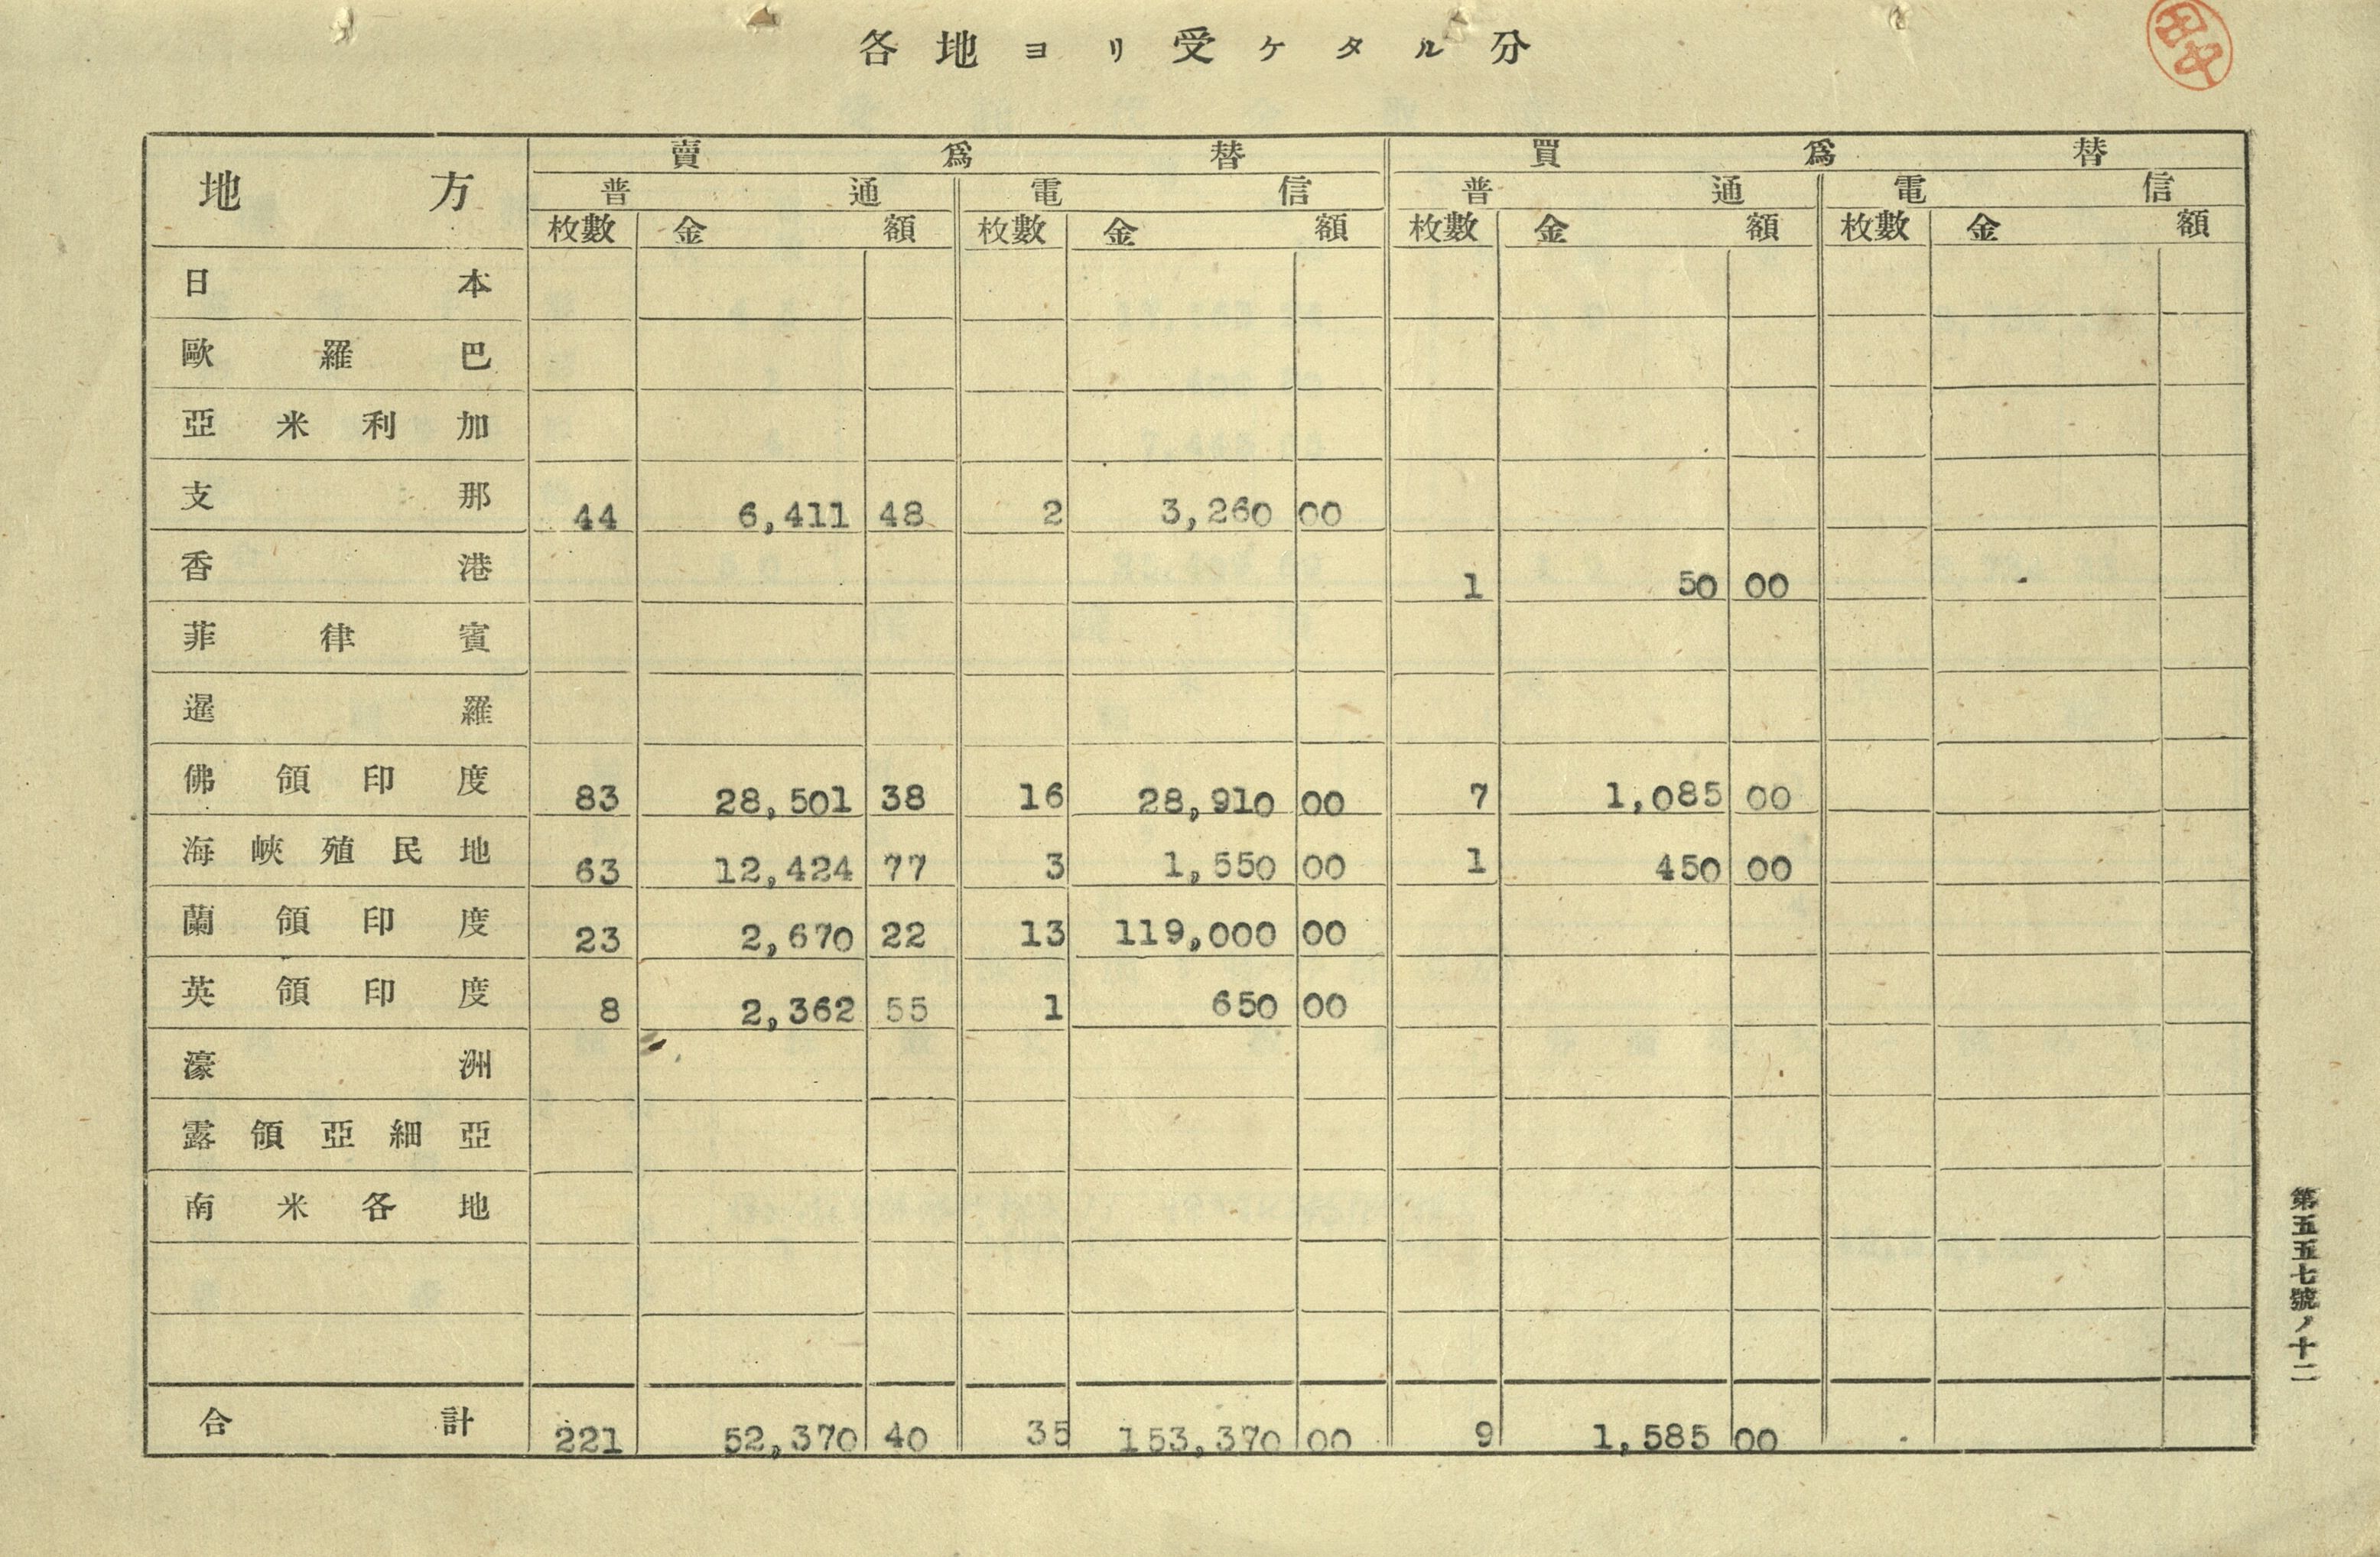 各地ヨリ受ケタル分
地方 賣爲替 買爲替
普通 電信 普通 電信
枚數 金額 枚數 金額 枚數 金額 枚數 金額
日本
歐羅巴
亞米利加
支那 44 6,411 48 2 3,260 00
香港 1 50 00
菲律賓
暹羅
佛領印度 83 28,501 38 16 28,910 00 7 1,085 00
海峽殖民地 63 12,424 77 3 1,550 00 1 450 00
蘭領印度 23 2,670 22 13 119,000 00
英領印度 8 2,362 55 1 650 00
濠洲
露領亞細亞
南米各地
合計 221 52,370 40 35 153,370 00 9 1,585 00
第五五七號ノ十二